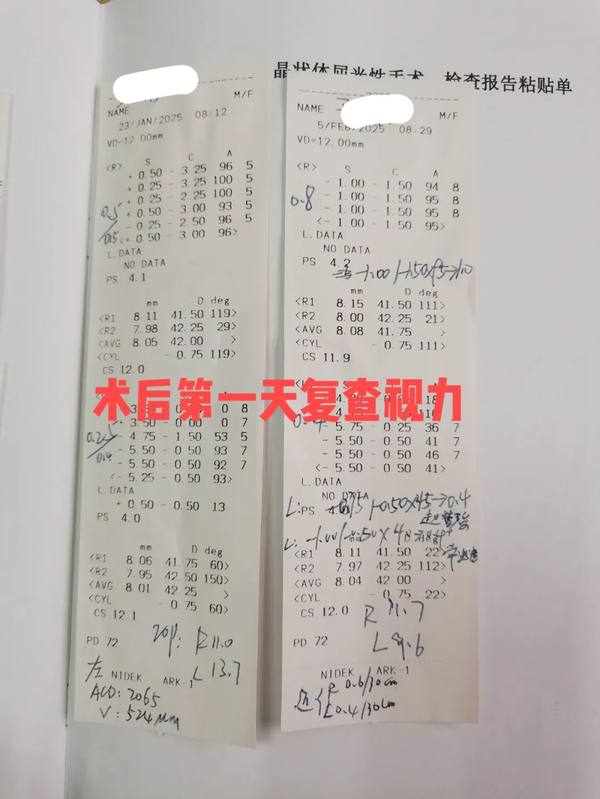 晶状体屈光性手术 检查报告粘贴单
NAME M/F
23/JAN/2025 08:12
VD=12.00mm
<R> S C A
+ 0.50 - 3.25 96 5
+ 0.25 - 3.25 100 5
+ 0.25 - 2.25 100 5
+ 0.50 - 3.00 93 5
- 0.25 - 2.50 96 5
<+ 0.50 - 3.00 96>
0.5
L.DATA
NO DATA
PS 4.1
mm D deg
<R1 8.11 41.50 119>
<R2 7.98 42.25 29>
<AVG 8.05 42.00 >
<CYL - 0.75 119>
CS 12.0
- 4.75 - 1.50 53 5
- 5.50 - 0.50 93 7
- 5.50 - 0.50 92 7
<- 5.25 - 0.50 93>
0.25
0.4
L.DATA
+ 0.50 - 0.50 13
PS 4.0
mm D deg
<R1 8.06 41.75 60>
<R2 7.95 42.50 150>
<AVG 8.01 42.25 >
<CYL - 0.75 60>
CS 12.1
PD 72
R 11.0
L 13.7
NIDEK ARK-1
左
ACD: 2065
V: 524μm
NAME M/F
5/FEB/2025 08:29
VD=12.00mm
<R> S C A
- 1.00 - 1.50 94 8
- 1.00 - 1.50 95 8
- 1.00 - 1.50 95 8
<- 1.00 - 1.50 95>
0.8
L.DATA
NO DATA
PS 4.2
-1.00/-1.50x95→1.0
mm D deg
<R1 8.15 41.50 111>
<R2 8.00 42.25 21>
<AVG 8.08 41.75 >
<CYL - 0.75 111>
CS 11.9
术后第一天复查视力
0.4
- 5.75 - 0.25 36 7
- 5.50 - 0.50 41 7
- 5.50 - 0.50 46 7
<- 5.50 - 0.50 41>
L.DATA
NO DATA
PS
mm D deg
<R1 8.11 41.50 22>
<R2 7.97 42.25 112>
<AVG 8.04 42.00 >
<CYL - 0.75 22>
CS 12.0
PD 72
NIDEK ARK-1
R 0.6/30cm
L 0.4/30cm